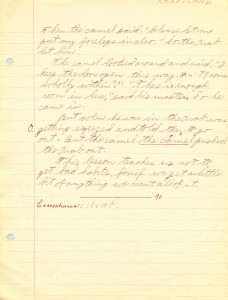 Then the camel said, "Please let me
put my forelegs in also." So the Arab
let him.
The camel looked around and said, "I
keep the door open this way, am I to come
wholly within?" "There is enough
room in here," said his master. So he
came in.
But when he was in the Arab was
getting squeezed and told the to go
out. But the camel the camel pushed
the Arab out.
This lesson teaches us not to
get bad habits, for if we get a little
bit of anything we want all of it.
90
Corrections: Arab.